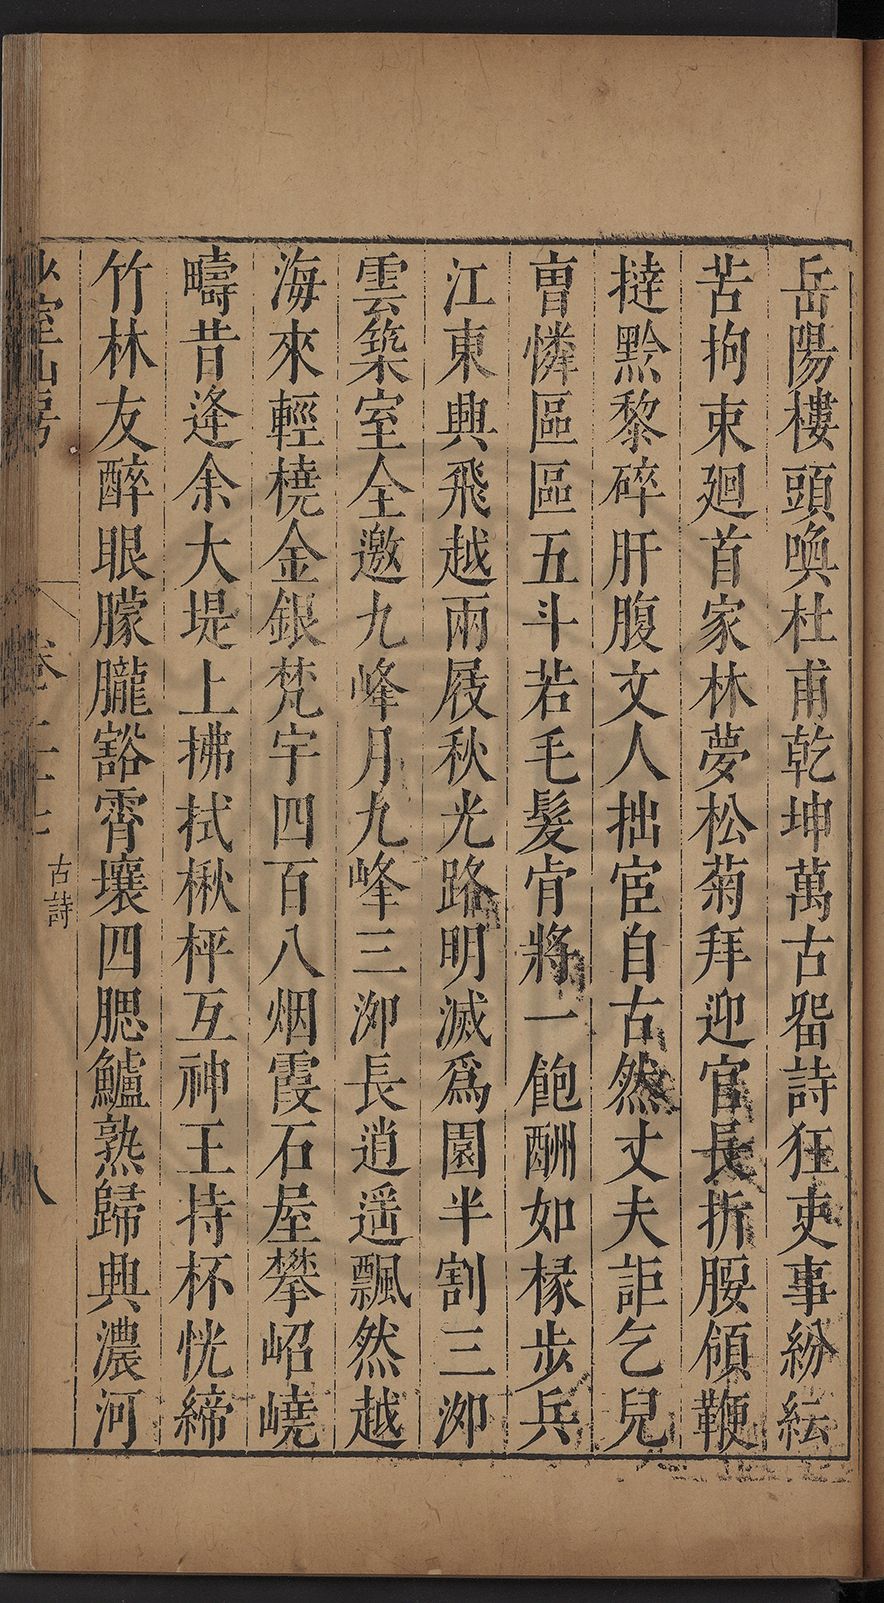 岳陽樓頭喚杜甫乾坤萬古畱詩狂吏事紛紜
苦拘束廻首家林夢松菊拜迎官長折腰傾鞭
撻黔黎碎肝腹文人拙宦自古然丈夫詎乞兒
曹憐區區五斗若毛髮肯將一飽酬如椽步兵
江東興飛越兩屐秋光路明滅爲園半割三泖
雲築室全邀九峰月九峰三泖長逍遥飄然越
海來輕橈金銀梵宇四百八烟霞石屋攀岧嶢
疇昔逢余大堤上拂拭楸枰互神王持杯恍締
竹林友醉眼朦朧豁霄壤四腮鱸熟歸興濃河
少室山房
卷二十七
古詩
八